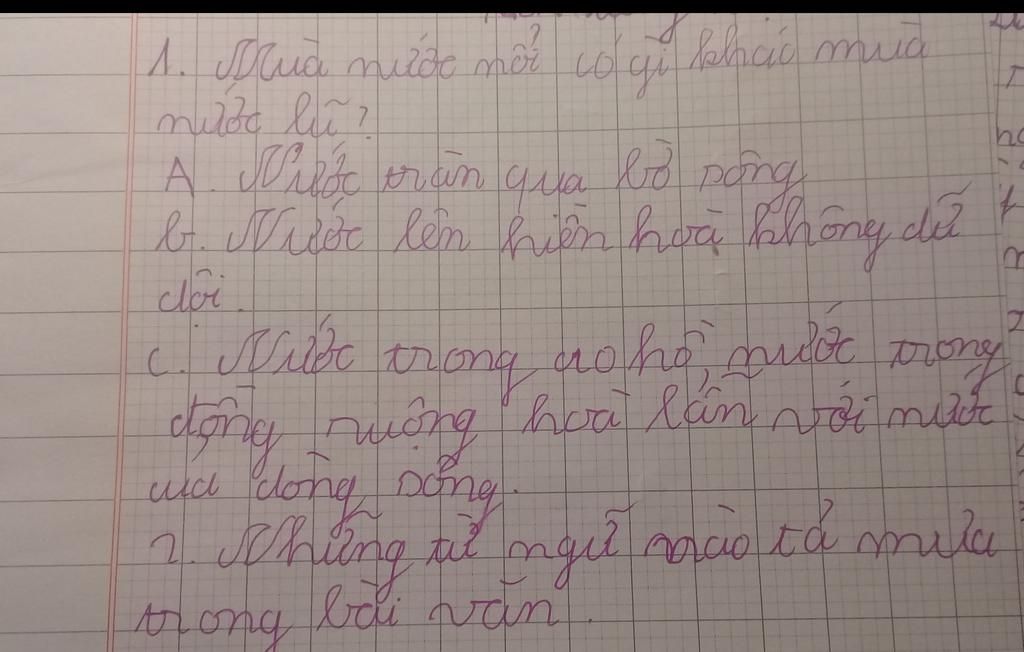 1. Mùa nước nổi có gì khác mùa
nước lũ?
A. Nước tràn qua bờ sông
b. Nước lên hiền hoà không dữ
dội.
c. Nước trong ao hồ, nước trong
đồng ruộng hoà lẫn với nước
của dòng sông.
2. Những từ ngữ nào tả mưa
trong bài văn.